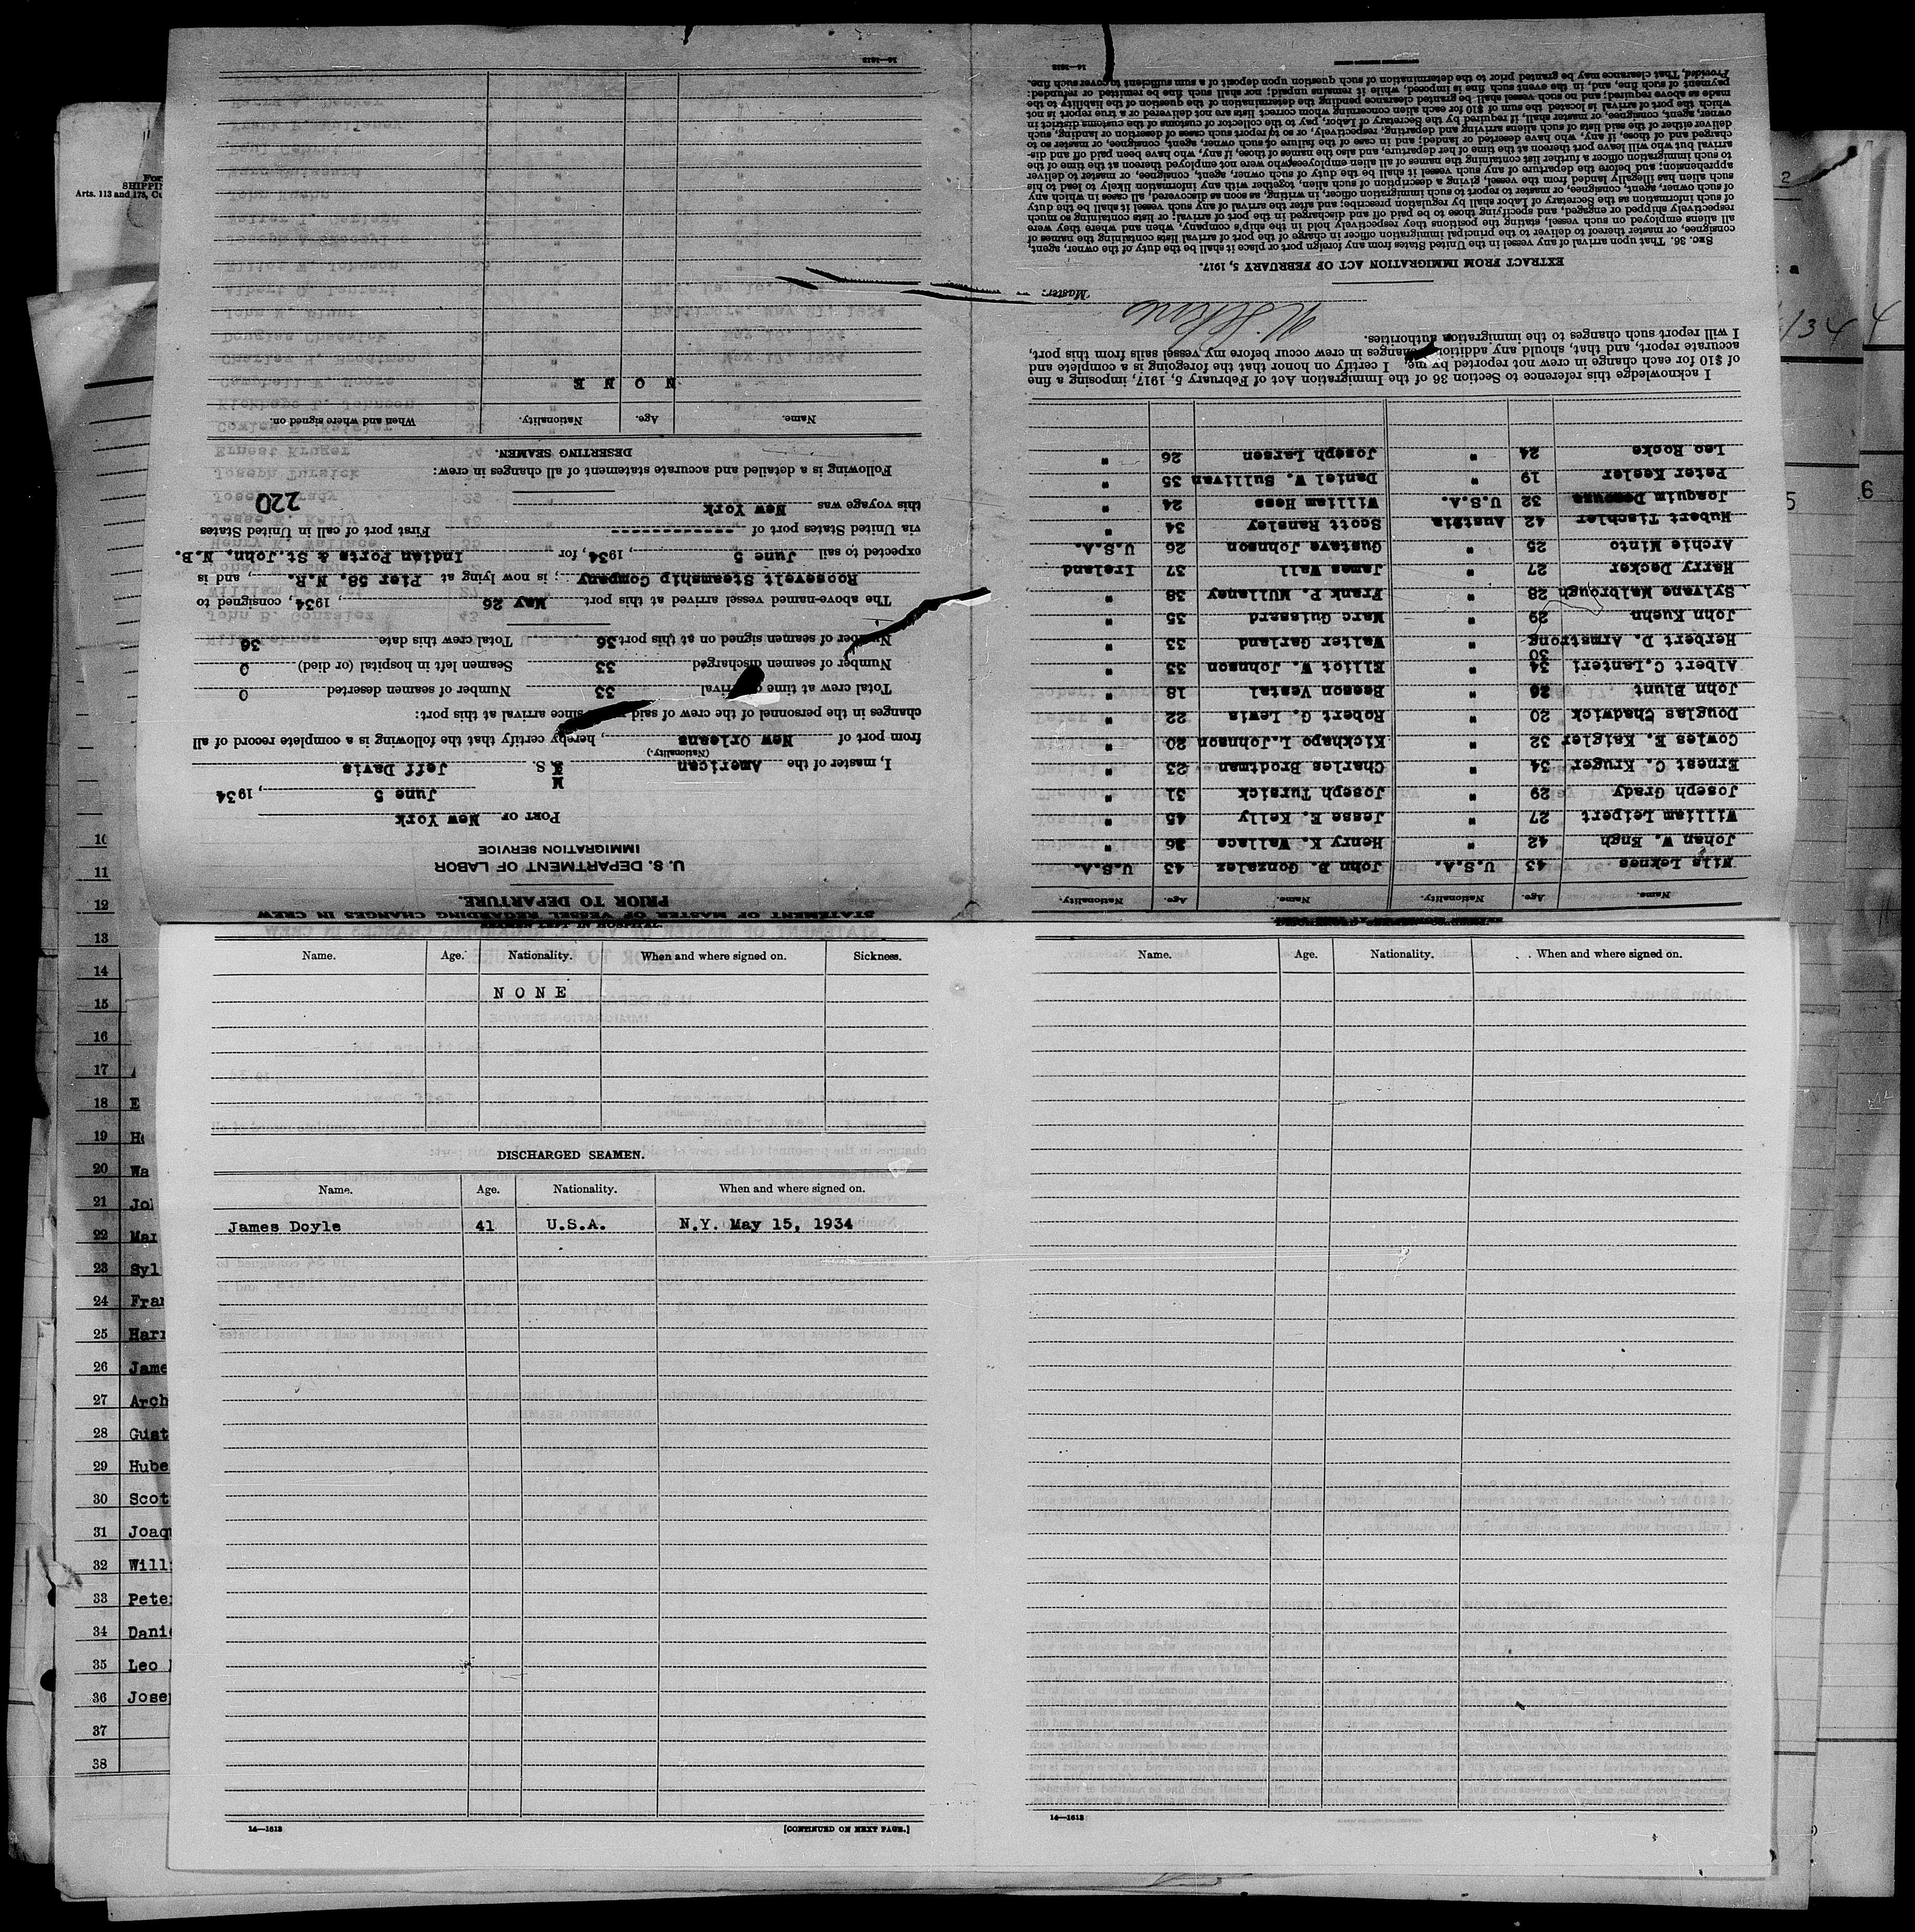 STATEMENT OF MASTER OF VESSEL REGARDING CHANGES IN CREW
PRIOR TO DEPARTURE.
U. S. DEPARTMENT OF LABOR
IMMIGRATION SERVICE
PORT OF New York
June 5, 1934
I, master of the American M S. Jeff Davis
(Nationality.)
from port of New Orleans, hereby certify that the following is a complete record of all
changes in the personnel of the crew of said since arrival at this port:
Total crew at time arrival 33 Number of seamen deserted 0
Number of seamen discharged 33 Seamen left in hospital (or died) 0
Number of seamen signed on at this port 36 Total crew this date 36
The above-named vessel arrived at this port May 26 1934, consigned to
Roosevelt Steamship Company; is now lying at Pier 58. N.R., and is
expected to sail June 5, 1934, for Indian Ports & St.John, N.B.
via United States port of ------------- First port of call in United States
this voyage was New York
220
Following is a detailed and accurate statement of all changes in crew:
DESERTING SEAMEN.
Name. Age. Nationality. When and where signed on.
N O N E
14—1613
Name. Age. Nationality. Name. Age. Nationality.
Nils Leknes 43 U.S.A. John B. Gonzalez 43 U.S.A.
Johan W. Engh 42 " Henry K. Wallace 36 "
William Leipert 27 " Jesse E. Kelly 45 "
Joseph Grady 29 " Joseph Tursick 31 "
Ernest C. Kruger 34 " Charles Brodtman 23 "
Cowles E. Kaigler 32 " Kickhapo I.Johnson 20 "
Douglas Chadwick 20 " Robert G. Lewis 22 "
John Blunt 26 " Beeson Vestal 18 "
Albert C.Lanteri 34 " Elliot W. Johnson 33 "
Herbert D. Armstrong 30 " Walter Garland 33 "
John Kuehn 29 " Marc Guissard 35 "
Sylvane Malbrough 28 " Frank P. Mullaney 38 "
Harry Decker 27 " James Wall 37 Ireland
Archie Minto 25 " Gustave Johnson 26 U.S.A.
Hubert Tischler 42 Austria Scott Ransley 34 "
Joaquim 32 U.S.A. William Hess 24 "
Peter Keeler 19 " Daniel W. Sullivan 35 "
Leo Rocke 24 " Joseph Larsen 26 "
I acknowledge this reference to Section 36 of the Immigration Act of February 5, 1917, imposing a fine
of $10 for each change in crew not reported by me. I certify on honor that the foregoing is a complete and
accurate report, and that, should any additional changes in crew occur before my vessel sails from this port,
I will report such changes to the immigration authorities.
Master.
EXTRACT FROM IMMIGRATION ACT OF FEBRUARY 5, 1917.
SEC. 36. That upon arrival of any vessel in the United States from any foreign port or place it shall be the duty of the owner, agent,
consignee, or master thereof to deliver to the principal immigration officer in charge of the port of arrival lists containing the names of
all aliens employed on such vessel, stating the positions they respectively hold in the ship's company, when and where they were
respectively shipped or engaged, and specifying those to be paid off and discharged in the port of arrival; or lists containing so much
of such information as the Secretary of Labor shall by regulation prescribe; and after the arrival of any such vessel it shall be the duty
of such owner, agent, consignee, or master to report to such immigration officer, in writing, as soon as discovered, all cases in which any
such alien has illegally landed from the vessel, giving a description of such alien, together with any information likely to lead to his
apprehension; and before the departure of any such vessel it shall be the duty of such owner, agent, consignee, or master to deliver
to such immigration officer a further list containing the names of all alien employees who were not employed thereon at the time of the
arrival but who will leave port thereon at the time of her departure, and also the names of those, if any, who have been paid off and dis-
charged and of those, if any, who have deserted or landed; and in case of the failure of such owner, agent, consignee, or master so to
deliver either of the said lists of such aliens arriving and departing, respectively, or so to report such cases of desertion or landing, such
owner, agent, consignee, or master shall, if required by the Secretary of Labor, pay to the collector of customs of the customs district in
which the port of arrival is located the sum of $10 for each alien concerning whom correct lists are not delivered or a true report is not
made as above required; and no such vessel shall be granted clearance pending the determination of the question of the liability to the
payment of such fine, and, in the event such fine is imposed, while it remains unpaid; nor shall such fine be remitted or refunded:
Provided, That clearance may be granted prior to the determination of such question upon deposit of a sum sufficient to cover such fine.
14—1613
Name. Age. Nationality. When and where signed on. Sickness.
N O N E
DISCHARGED SEAMEN.
Name. Age. Nationality. When and where signed on.
James Doyle 41 U.S.A. N.Y. May 15, 1934
14—1613 [CONTINUED ON NEXT PAGE.]
Name. Age. Nationality. When and where signed on.
14—1613
SHIPPIN
Arts. 113 and 175, Cu
10
11
12
13
14
15
16
17
18 E
19 He
20 Wa
21 Jo
22 Mar
23 Syl
24 Fran
25 Harr
26 Jame
27 Arch
28 Gust
29 Hube
30 Scot
31 Joaq
32 Will
33 Pete
34 Dani
35 Leo
36 Jose
37
38
2
4
5
6